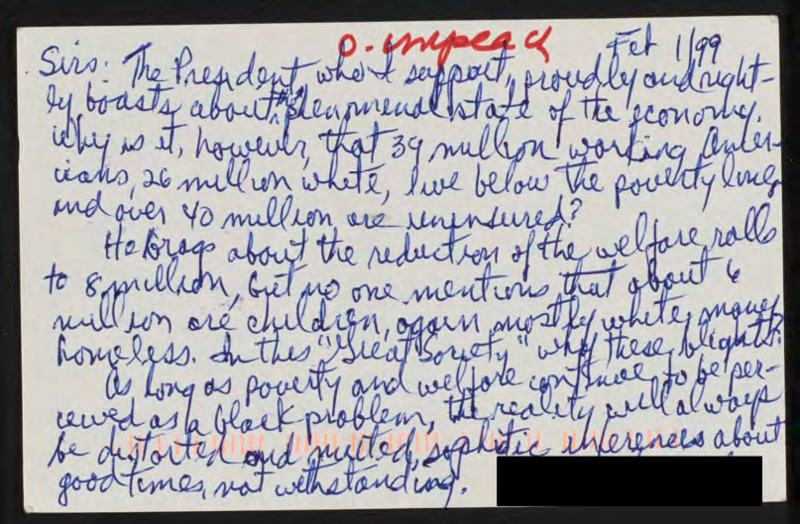 O. impeach
Feb 1/99
Sirs: The President who I support, proudly and right-
ly boasts about the phenomenal state of the economy.
Why is it, however, that 39 million working Amer-
icans, 26 million white, live below the poverty line,
and over 40 million are uninsured?
He brags about the reduction of the welfare rolls
to 8 million, but no one mentions that about 6
million are children, again mostly white, many
homeless. In this "Great Society" why these blights?
As long as poverty and welfare continue to be per-
ceived as a black problem, the reality will always
be distorted and muted, sophistic inferences about
good times, not withstanding.